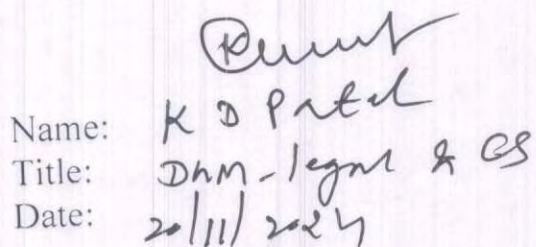 Name: K D Patel
Title: DGM - legal & CS
Date: 20/11/2024